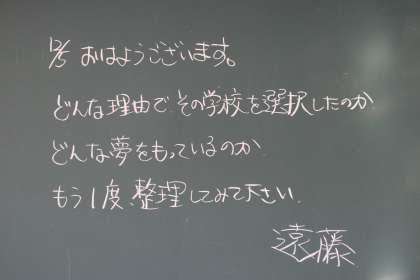 12/5 おはようございます。
どんな理由で その学校を選択したのか
どんな夢をもっているのか
もう1度、整理してみて下さい.
遠藤